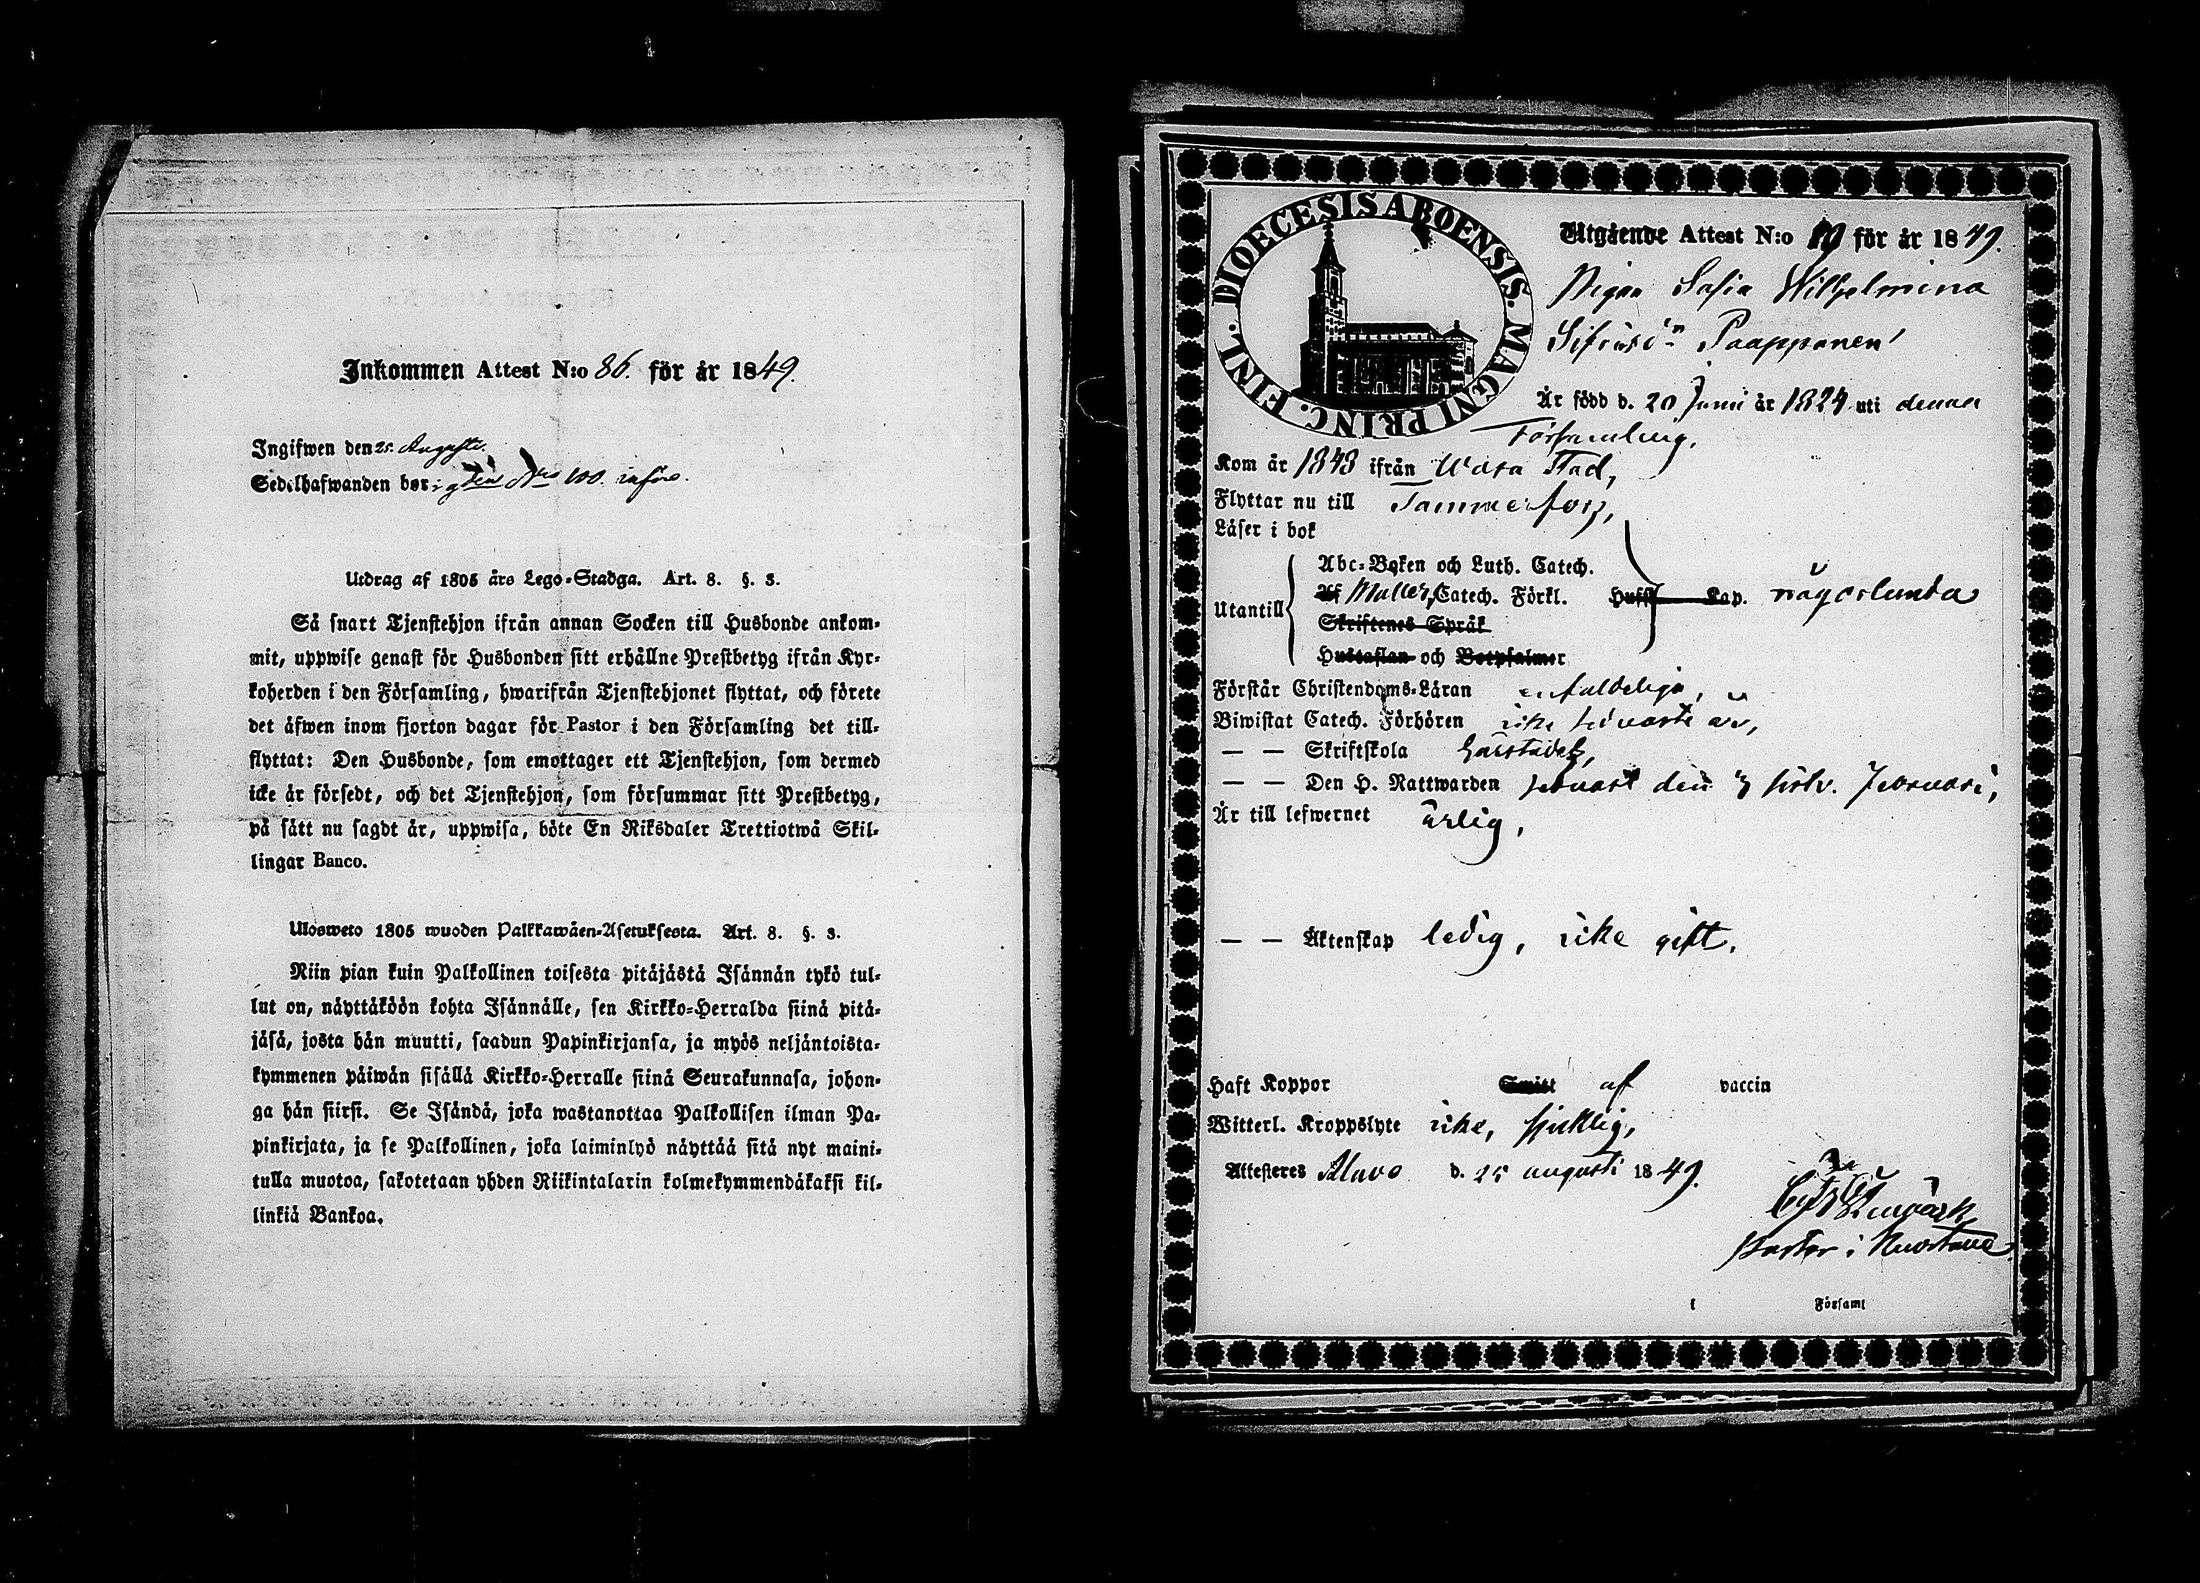 Inkommen Attest N:o 86. för år 1849.
Ingifwen den 25. Augusti.
Sedelhafwanden bor i gården N:o 100. införe.
Utdrag af 1805 års Lego-Stadga. Art. 8. §. 3.
Så snart Tjenstehjon ifrån annan Socken till Husbonde ankom-
mit, uppwise genast för Husbonden sitt erhållne Prestbetyg ifrån Kyr-
koherden i den Församling, hwarifrån Tjenstehjonet flyttat, och förete
det äfwen inom fjorton dagar för Pastor i den Församling det till-
flyttat: Den Husbonde, som emottager ett Tjenstehjon, som dermed
icke är försedt, och det Tjenstehjon, som försummar sitt Prestbetyg,
på sätt nu sagdt är, uppwisa, böte En Riksdaler Trettiotwå Skil-
lingar Banco.
Ulosweto 1805 wuoden Palkkawäen-Asetuksesta. Art. 8. §. 3.
Niin pian kuin Palkollinen toisesta pitäjästä Isännän tykö tul-
lut on, näyttäköön kohta Isännälle, sen Kirkko-Herralda siinä pitä-
jäsä, josta hän muutti, saadun Papinkirjansa, ja myös neljäntoista-
kymmenen päiwän sisällä Kirkko-Herralle siinä Seurakunnasa, johon-
ga hän siirsi. Se Isändä, joka wastanottaa Palkollisen ilman Pa-
pinkirjata, ja se Palkollinen, joka laiminlyö näyttää sitä nyt maini-
tulla muotoa, sakotetaan yhden Riikintalarin kolmekymmendäkaksi kil-
linkiä Bankoa.
FINL. DIOECESIS ABOENSIS. MAGNI PRINC.
Utgående Attest N:o 19 för år 1849.
Pigan Sofia Wilhelmina
Sifridsdr Paapponen
Är född d. 20 Juni år 1824 uti denna
Församling.
Kom år 1848 ifrån Wasa Stad,
Flyttar nu till Tammerfors,
Läser i bok
Abc-Boken och Luth. Catech.
Utantill Af Mallers Catech. Förkl. Huff Kap. någorlunda
Skriftenes Språk
Hustaflan och Botpsalmer
Förstår Christendoms-Läran enfaldeliga,
Biwistat Catech. Förhören icke sednaste år,
— — Skriftskola
— — Den H. Nattwarden sednast den Februari,
Är till lefwernet ärlig,
— — Äktenskap ledig, icke gift.
Haft Koppor Smitt af vaccin
Witterl. Kroppslyte icke, sjuklig,
Attesteras Alavo d. 25 augusti 1849.
Pastor i Kuortane
i Församl